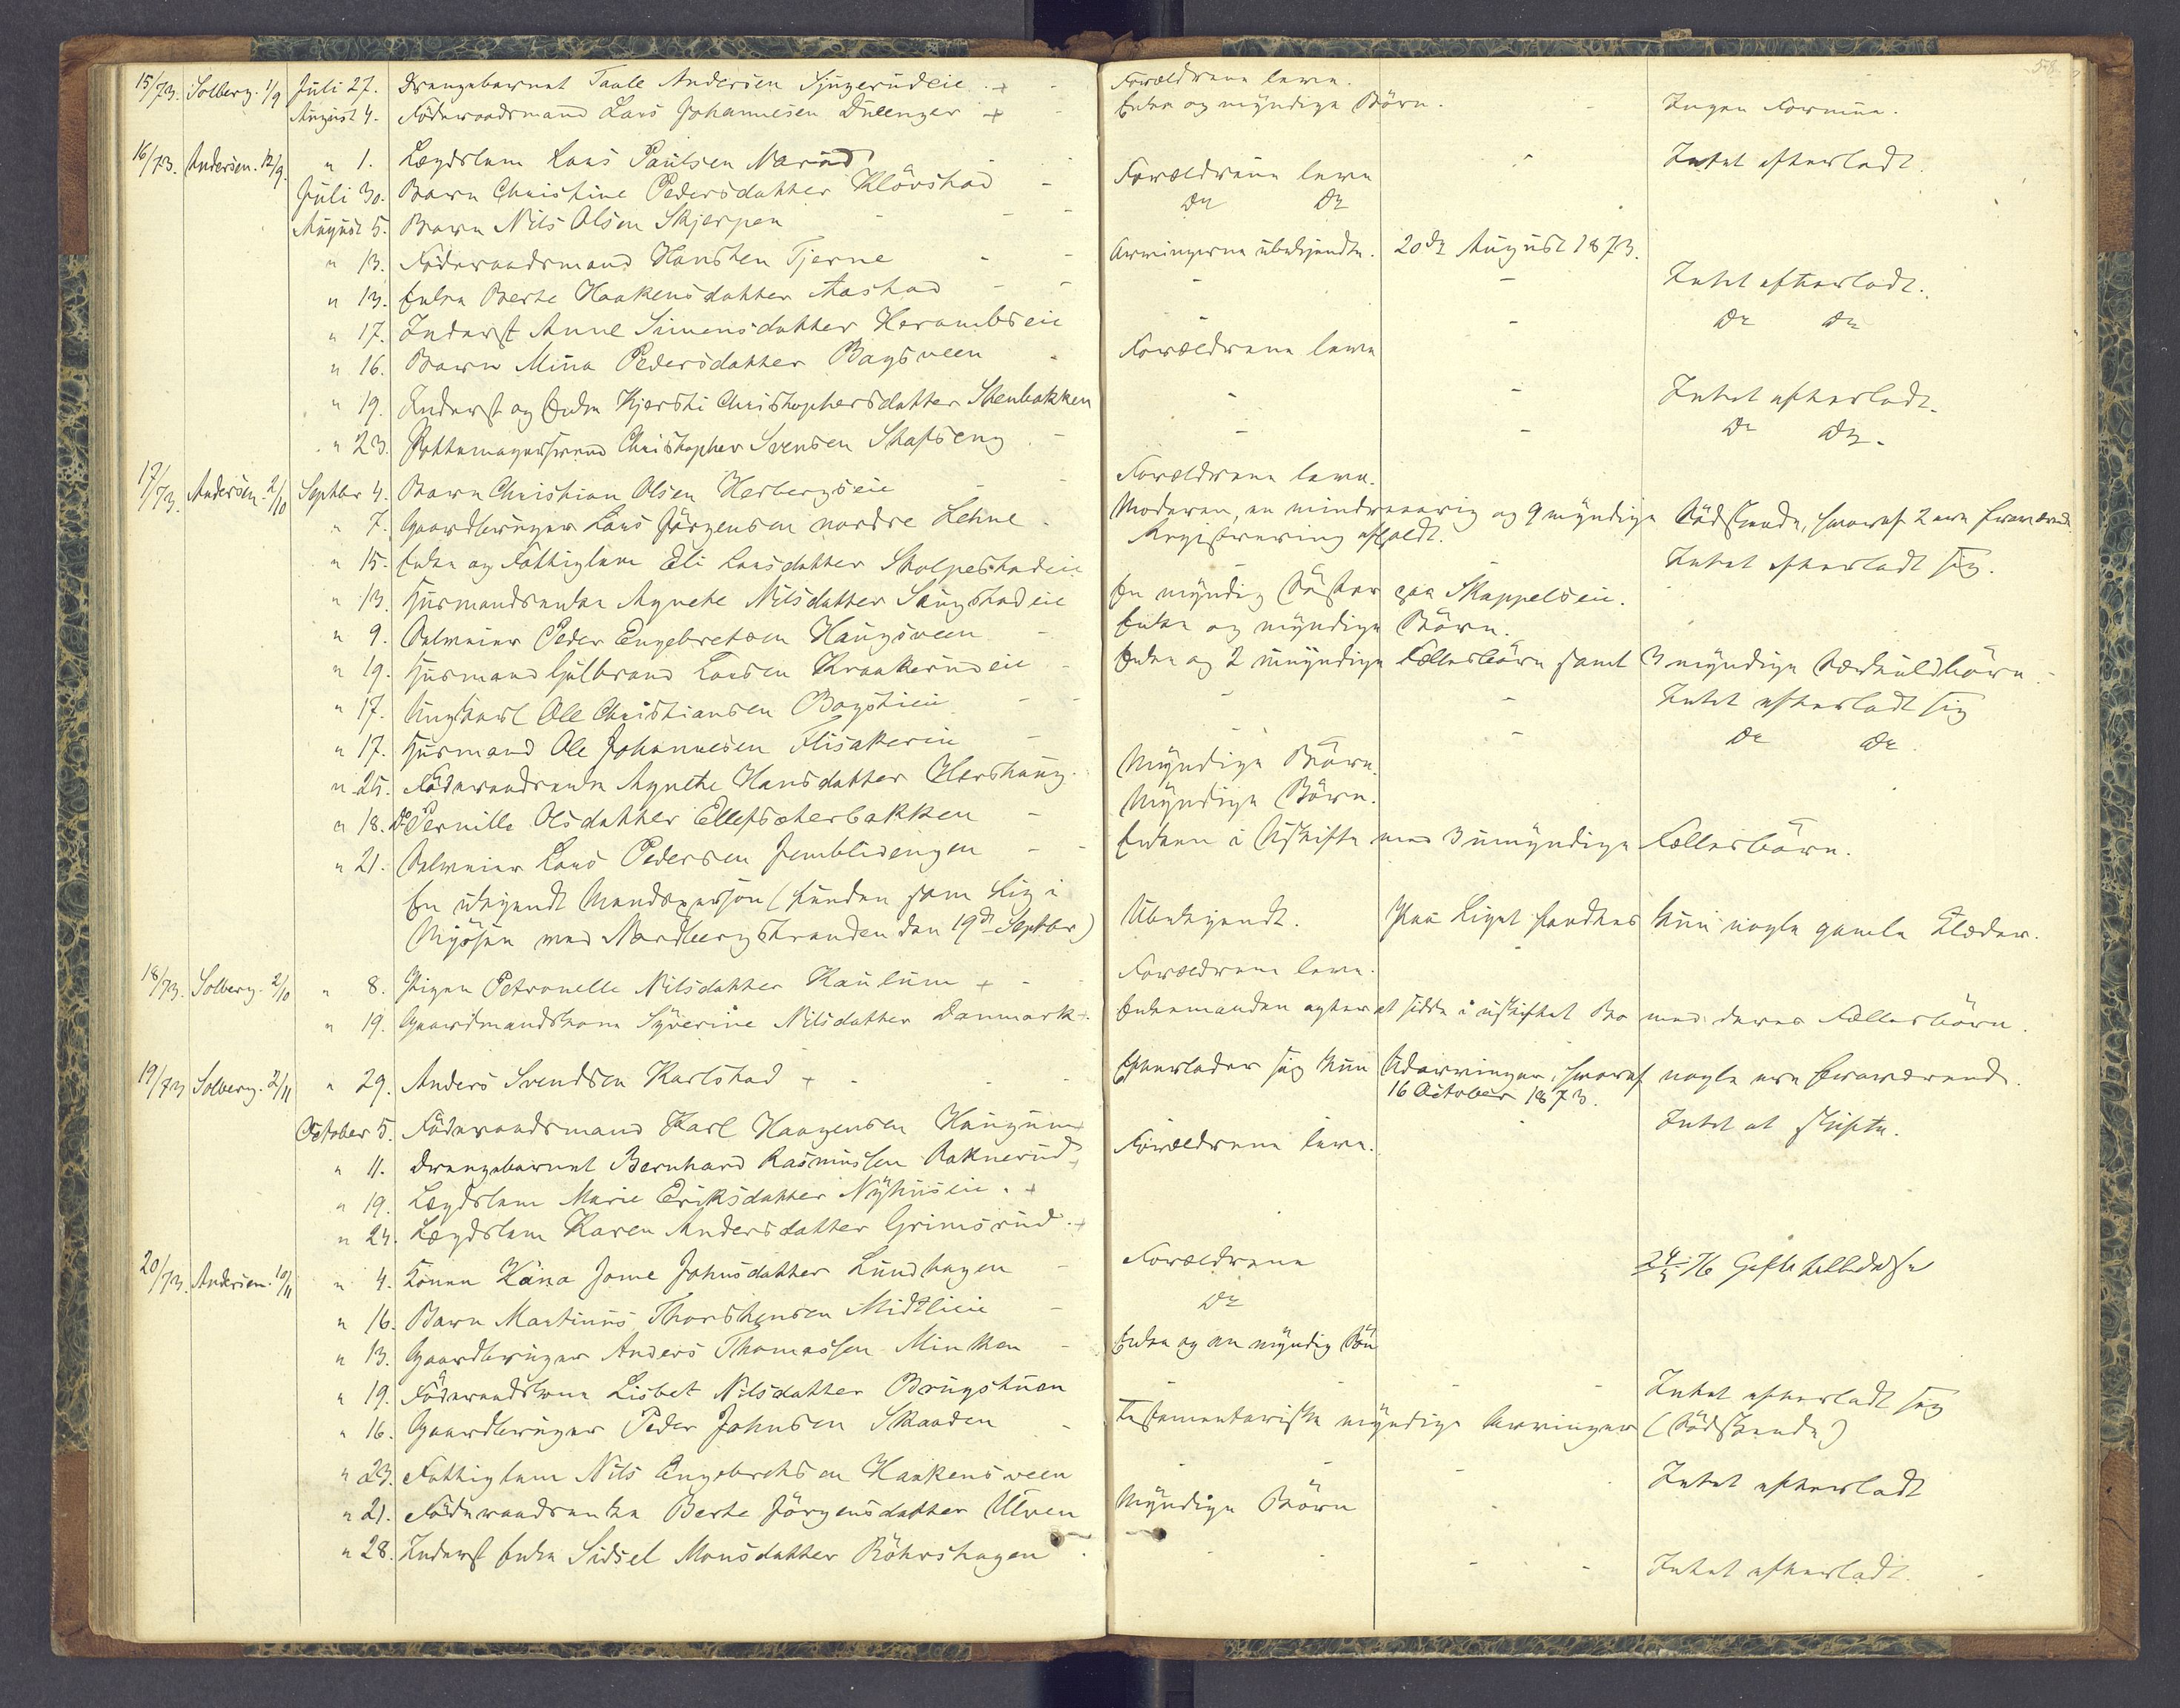 58
15/73. Solberg. 1/9 Juli 27. Drengebarnet Paule Andersen Sjugerudeie + - Forældrene leve.
August 4. Föderaadsmand Lars Johannesen Dulenger + - Enke og myndige Börn. - Ingen Formue.
16/73. Andersen. 12/9. " 1. Lægdslem Lars Paulsen Narud - - - Intet efterladt.
Juli 30. Barn Christine Pedersdatter Klövstad - Forældrene leve
August 5. Barn Nils Olsen Skjerpen - - - Do Do
" 13. Föderaadsmand Hansken Tjerne - - Arvingerne ubekjendte. 20de August 1873.
" 13. Enke Berte Haakensdatter Aastad - - - - Intet efterladt.
" 17. Inderst Anne Simensdatter Herambseie - - Do Do
" 16. Barn Mina Pedersdatter Bagsveen - Forældrene leve
" 19. Inderst og Enke Kjersti Christophersdatter Stenbakken - - Intet efterladt.
" 23. Pottemagersvend Christopher Svensen Skafseng - - - Do Do.
17/73. Andersen. 2/10 Septbr 4. Barn Christian Olsen Herbergseie - - Forældrene leve.
" 7. Gaardbruger Lars Jörgensen nordre Lehne - Moderen, en mindreaarig og 9 myndige Södskende, hvoraf 2 ere fraværende
Registrering afholdt.
" 15. Enke og Fattiglem Eli Larsdatter Skolpestadeie Intet efterladt sig.
" 13. Husmandsenke Agnethe Nilsdatter Saugstadeie En myndig Söster paa Skappelseie.
" 9. Selveier Peder Engebretsen Haugsveen - Enke og myndige Börn.
" 19. Husmand Gulbrand Larsen Kraakerudeie - Enke og 2 umyndige Fællesbörn samt 3 myndige Særkuldbörn.
" 17. Ungkarl Ole Christiansen Bagstieie - - - - Intet efterladt sig
" 17. Husmand Ole Johannesen Flisakereie - - - Do Do.
" 25. Föderaadsenke Agnethe Hansdatter Hershaug. Myndige Börn.
" 18. Do Pernille Olsdatter Ellefsæterbakken - Myndige Börn.
" 21. Selveier Lars Pedersen Jemblidengen - - Enken i Uskifte med 3 umyndige Fællesbörn.
En ukjendt Mandsperson (funden som Lig i
Mjösen ved Nordbergstranden den 19de Septbr) Ubekjendt. Paa Liget fandtes kun nogle gamle Klæder.
18/73. Solberg. 2/10 " 8. Pigen Petronelle Nilsdatter Kaulum + - Forældrene leve.
" 19. Gaardmandskone Syverine Nilsdatter Danmark +. Enkemanden agter at sidde i uskiftet Bo med deres Fællesbörn.
19/73 Solberg. 2/11 " 29. Anders Svendsen Karlstad + - - - Efterlader sig kun Udarvinger, hvoraf nogle ere fraværende.
16 October 1873.
October 5. Föderaadsmand Karl Haagensen Haugum + - Intet at skifte.
" 11. Drengebarnet Bernhard Rasmussen Raknerud + Forældrene leve.
" 19. Lægdslem Marie Eriksdatter Nyhuseie. +
" 24. Lægdslem Karen Andersdatter Grimsrud. +
20/73. Andersen. 10/11 " 4. Konen Kana Jome Johnsdatter Lundhagen - Forældrene 24/3 76
" 16. Barn Martinus Thorstensen Midtlieie - Do
" 13. Gaardbruger Anders Thomassen Minken - Enke og en myndig Sön
" 19. Föderaadskone Lisbet Nilsdatter Brugstuen - - - Intet efterladt sig
" 16. Gaardbruger Peder Johnsen Skaaden - Testamentariske myndige Arvinger (Södskende)
" 23. Fattiglem Nils Engebretsen Haakensveen - - - Intet efterladt
" 21. Föderaadsenke Berte Jörgensdatter Ulven Myndige Börn -
" 28. Inderst Enke Sidsel Monsdatter Röhrshagen - - - - - Intet efterladt.